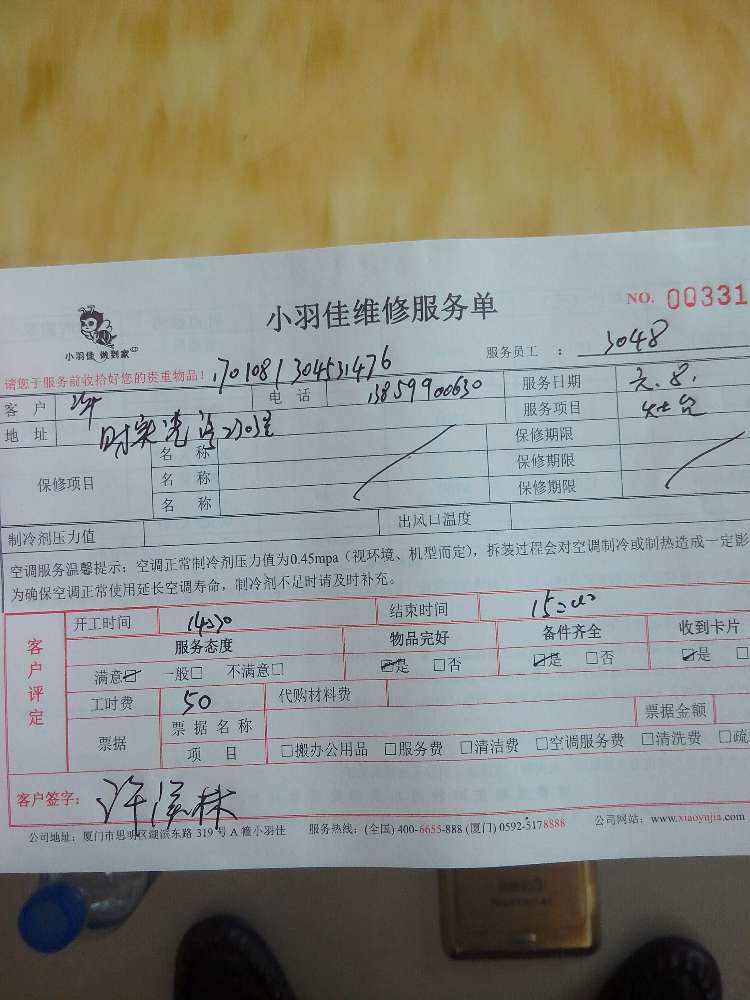 小羽佳维修服务单
NO. 00331
小羽佳 做到家
服务员工 : 3048
请您于服务前收拾好您的贵重物品!
1701081304531476
客 户 许 电 话 13859900630 服务日期 8.
地 址 2303室 服务项目
保修项目 名 称 保修期限
名 称 保修期限
名 称 保修期限
制冷剂压力值 出风口温度
空调服务温馨提示:空调正常制冷剂压力值为0.45mpa(视环境、机型而定),拆装过程会对空调制冷或制热造成一定影
为确保空调正常使用延长空调寿命,制冷剂不足时请及时补充。
客户评定
开工时间 14:30 结束时间 15:00
服务态度 物品完好 备件齐全 收到卡片
满意☑ 一般□ 不满意□ ☑是 □否 ☑是 □否 ☑是 □
工时费 50 代购材料费
票据 票 据 名 称 票据金额
项 目 □搬办公用品 □服务费 □清洁费 □空调服务费 □清洗费 □疏
客户签字: 许 林
公司地址:厦门市思明区湖滨东路 319 号 A 幢小羽佳 服务热线:(全国) 400-6655-888 (厦门) 0592-5178888 公司网站:www.xiaoyujia.com